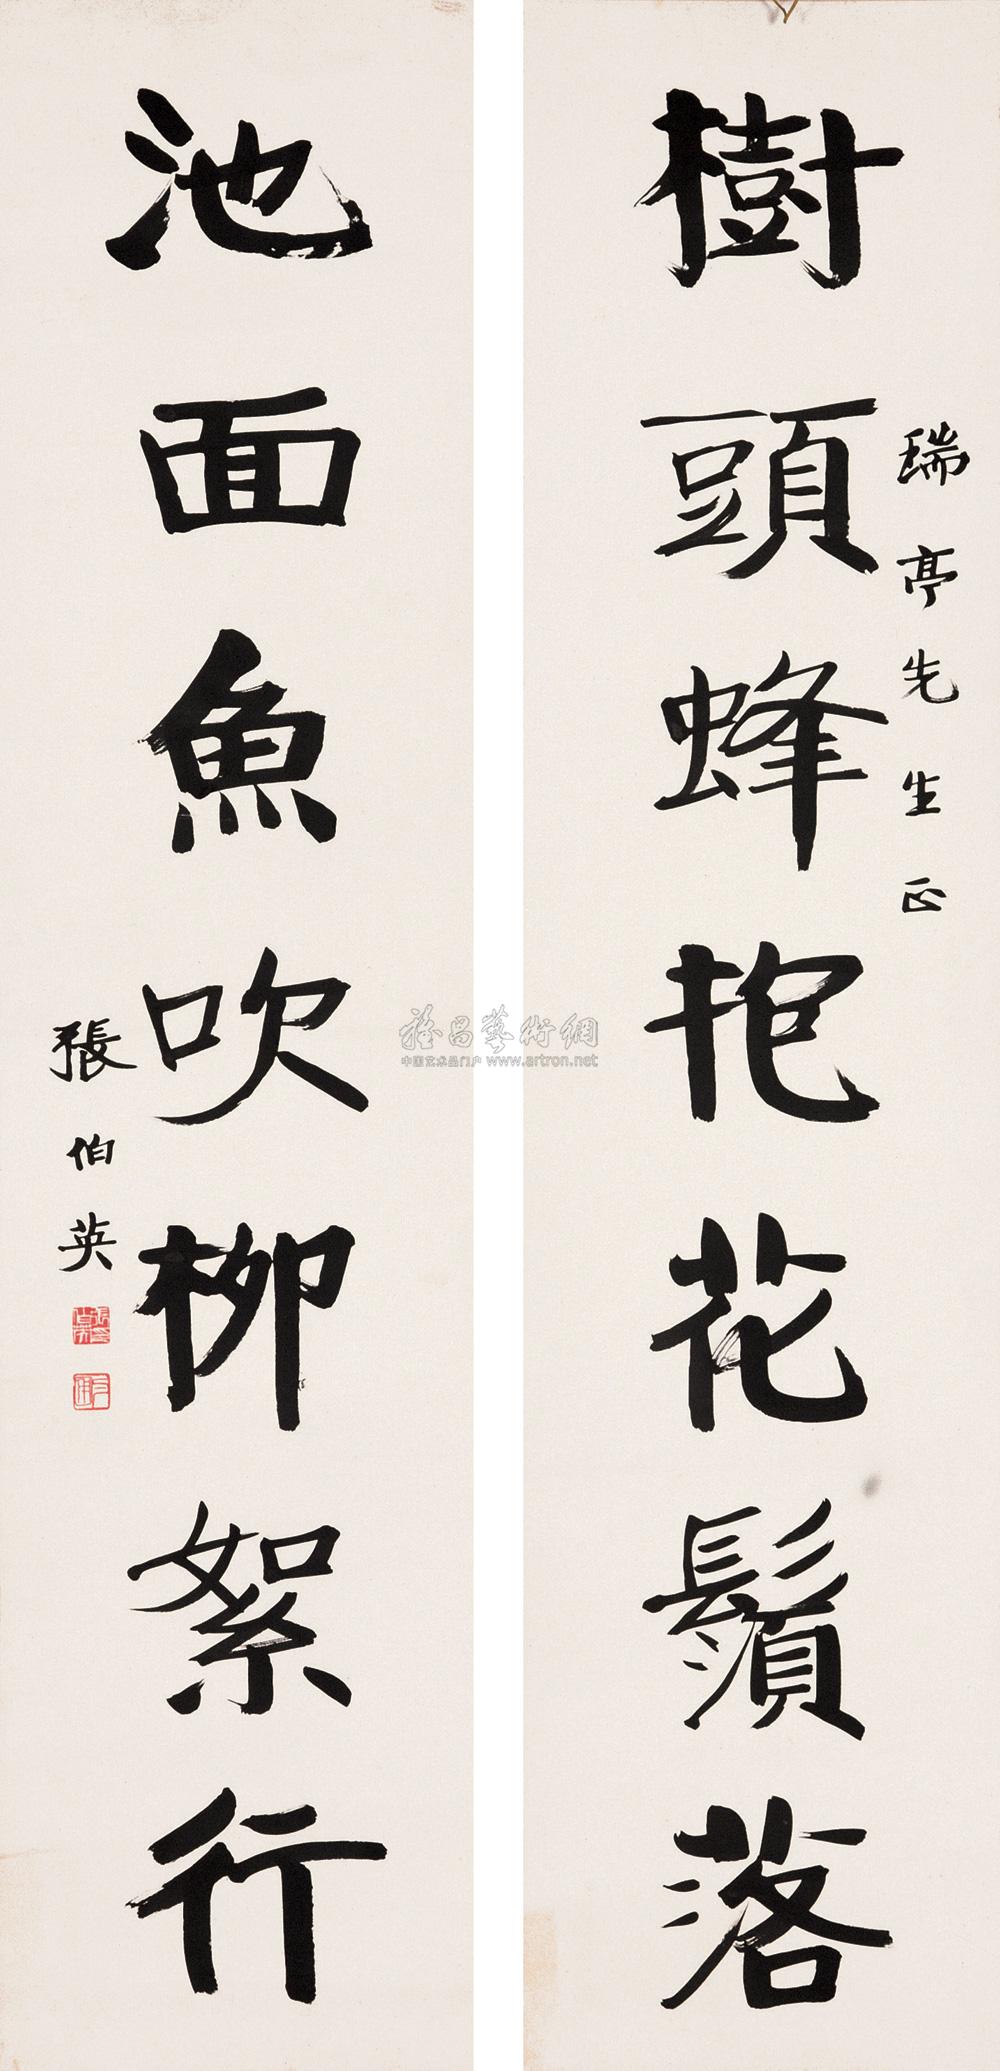 樹頭蜂抱花鬚落
瑞亭先生正
池面魚吹柳絮行
張伯英
雅昌藝術網
中国艺术品门户 www.artron.net